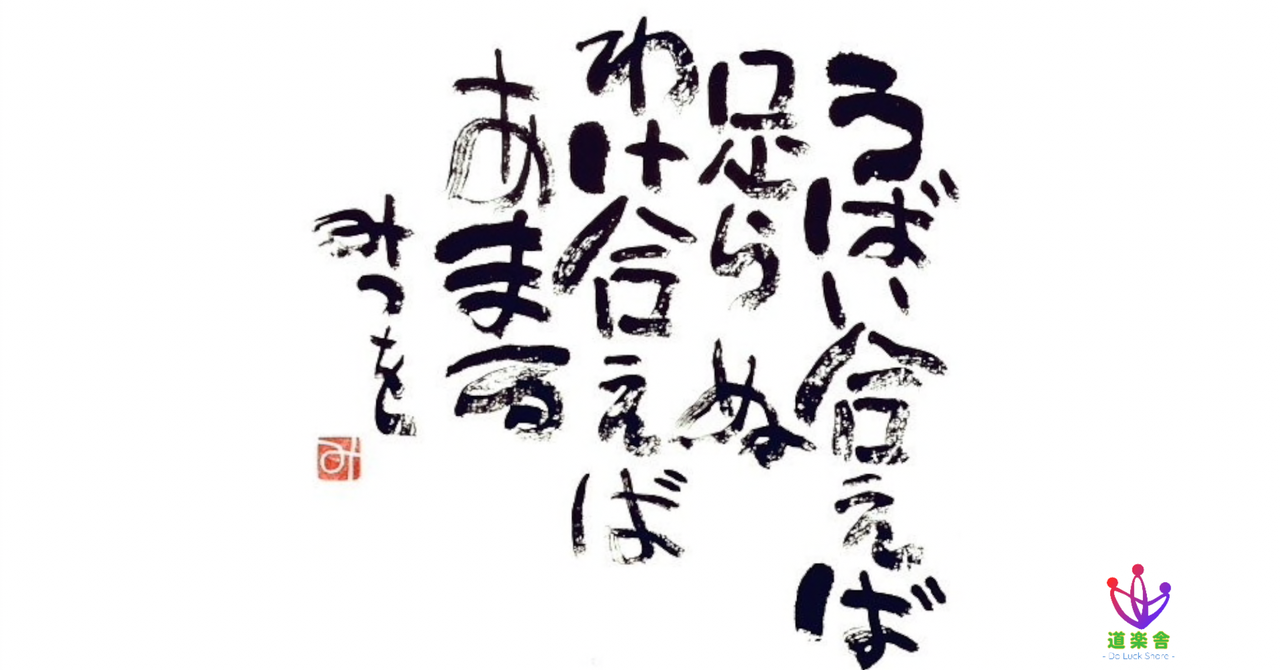 うばい合えば
足らぬ
わけ合えば
あまる
みつを
み
道楽舎
- Do Luck Share -